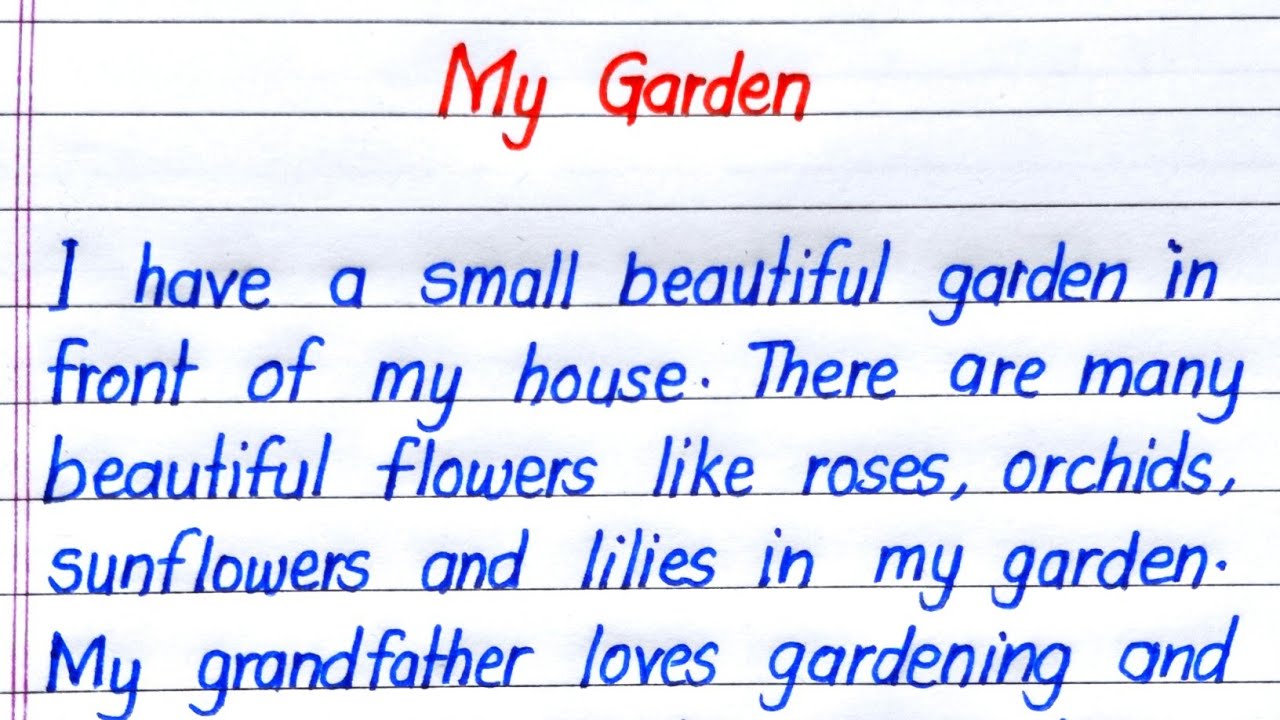 My Garden
I have a small beautiful garden in
front of my house. There are many
beautiful flowers like roses, orchids,
sunflowers and lilies in my garden.
My grandfather loves gardening and